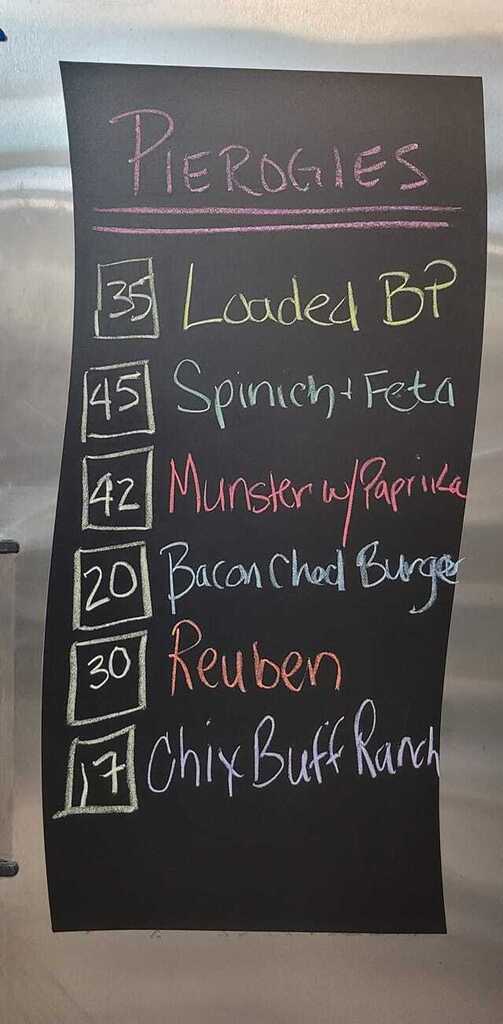 PIEROGIES
35 Loaded BP
45 Spinich + Feta
42 Munster w/ Papriika
20 Bacon Chod Burger
30 Reuben
17 Chix Buff Ranch